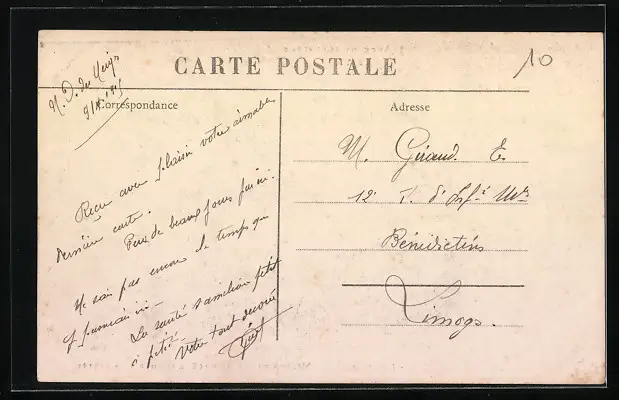 CARTE POSTALE
10
N. D. des Neiges
Correspondance
Adresse
Reçu avec plaisir votre aimable
Dernière carte.
Peux de beaux jours par ici.
Ne sais pas encore le temps que
je passerai ici.
La santé s'améliore petit
à petit.
Votre tout dévoué
M. Giraud. E.
12e
Bénédictins
Limoges.